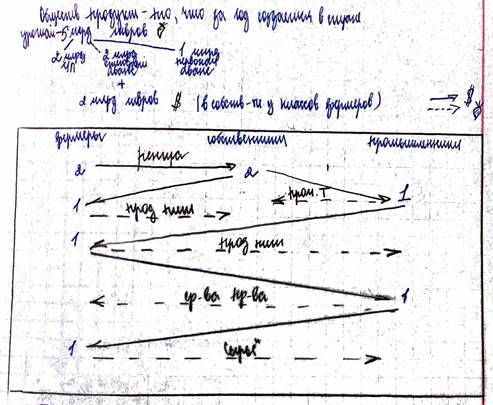 Обществ продукт - то, что за год создался в стране
урожай - 5 млрд ливров $
2 млрд ЧП 2 млрд аванс 1 млрд аванс
+
2 млрд ливров $ (в собств-ти у классов фермеров)
$
фермеры собственники промышленники
2 рента 2
1 пром. т 1
прод пит
1 прод пит
ср-ва пр-ва 1
1 сырьё